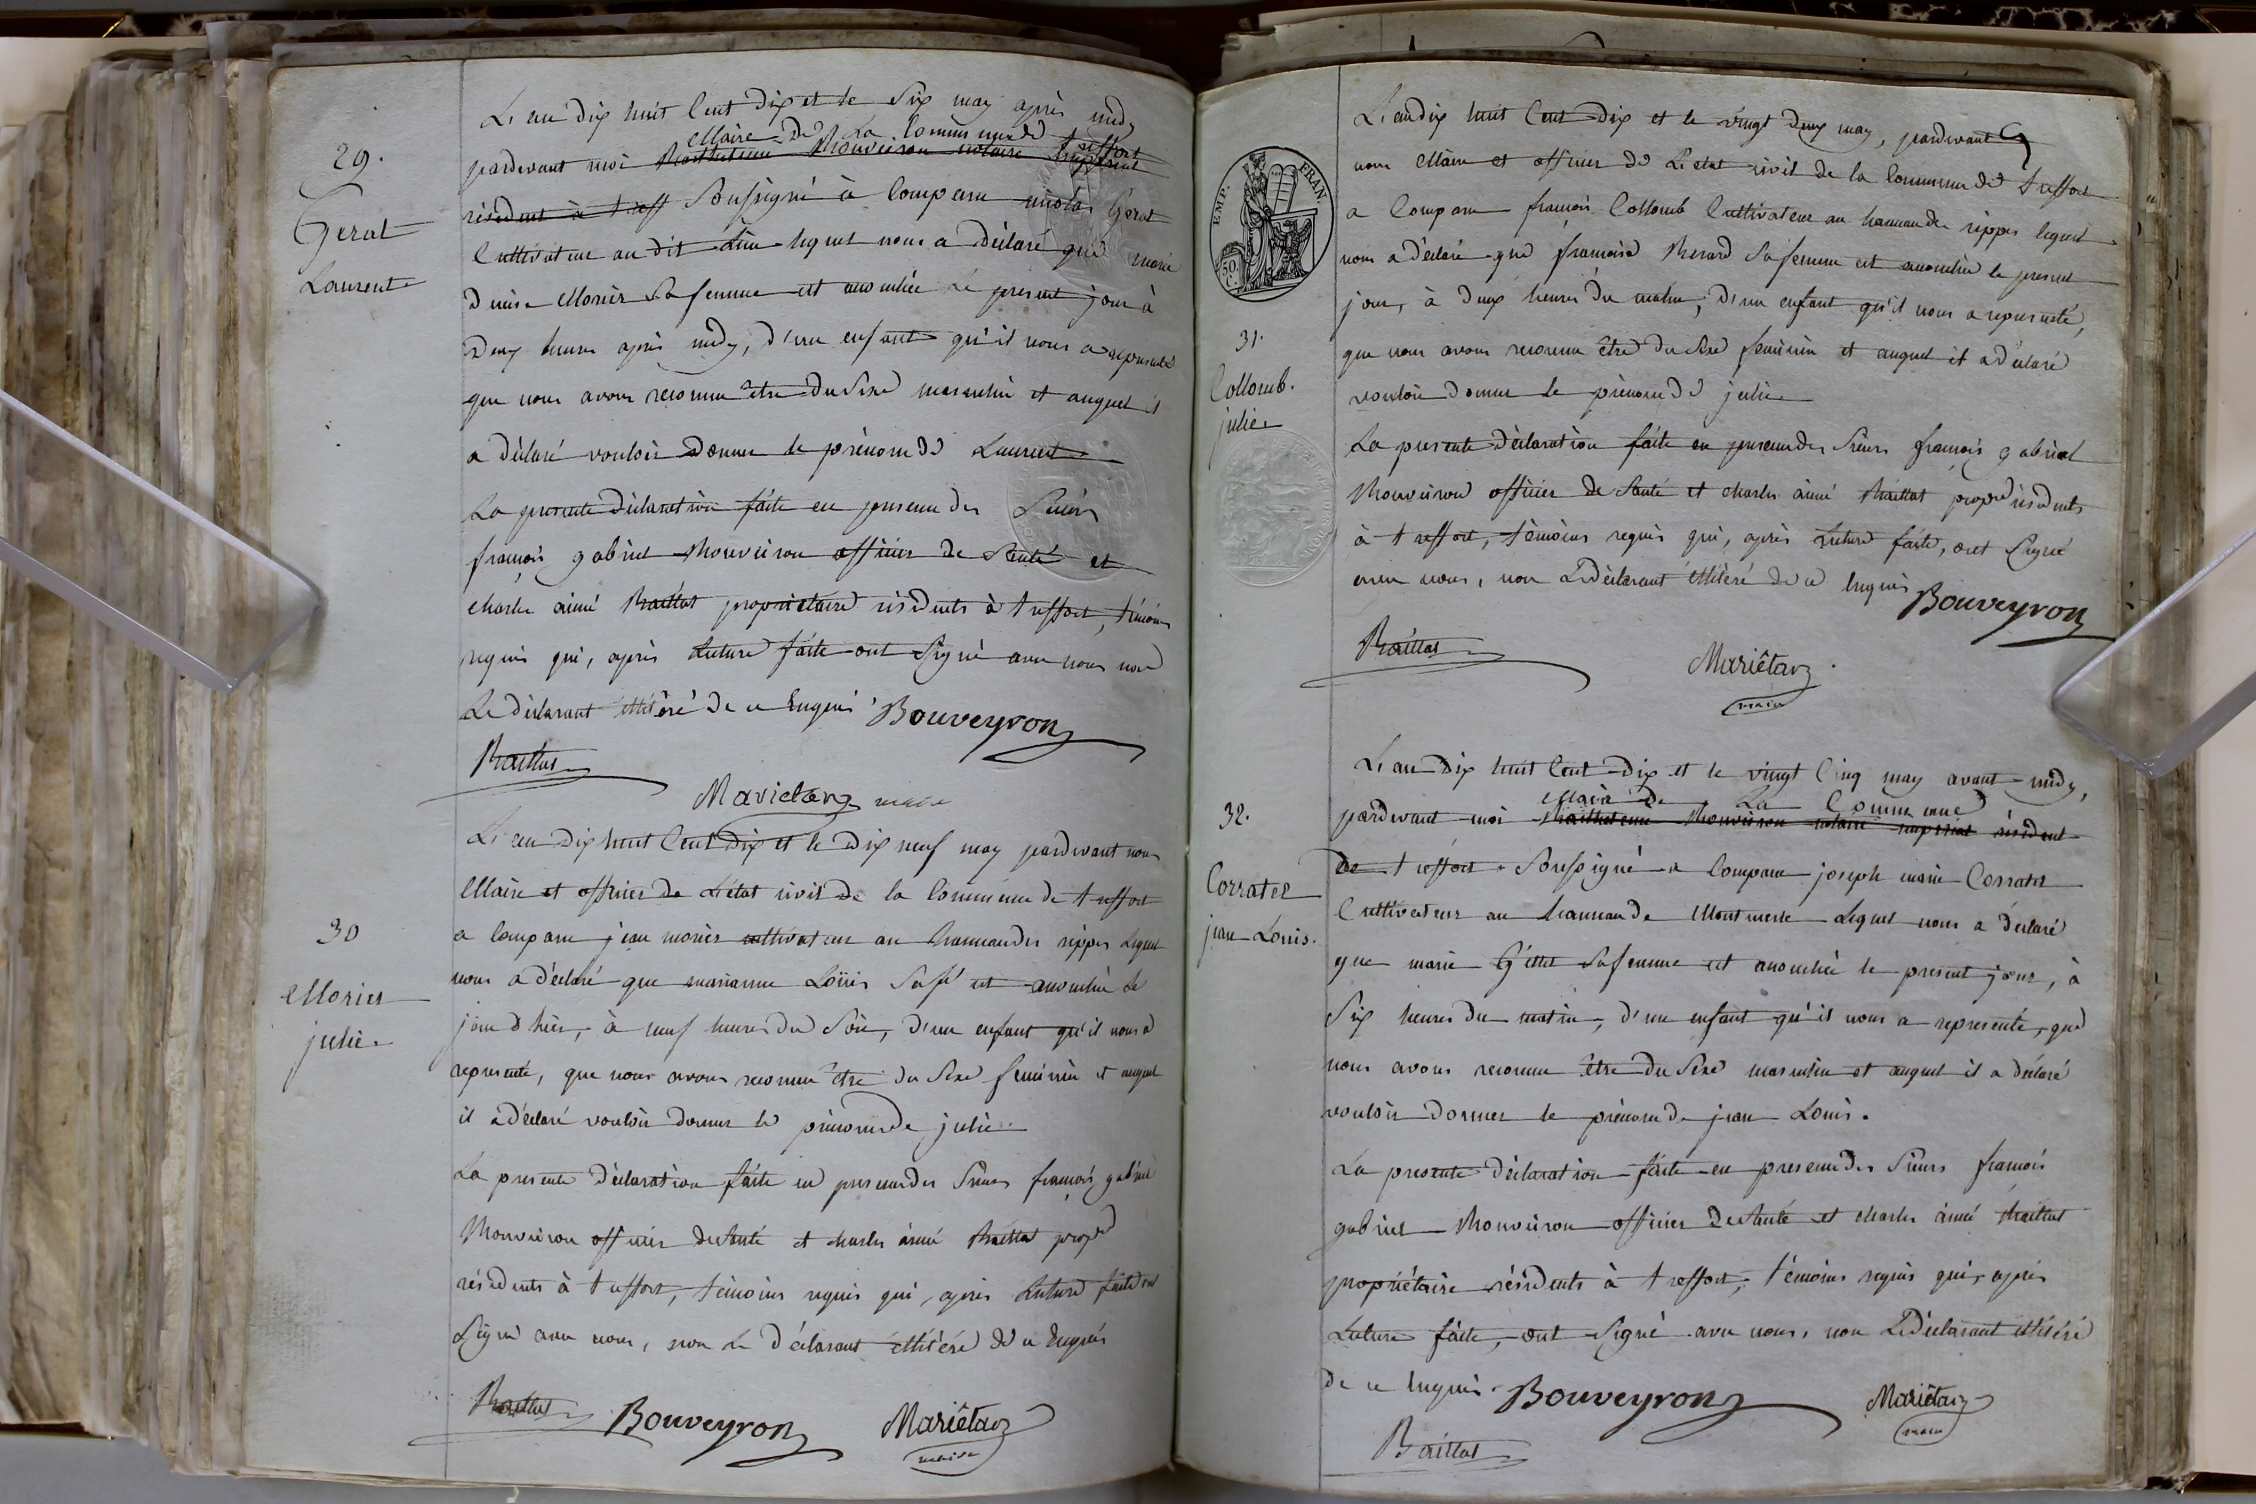 29.
Gerat
Laurent
L'an dix huit Cent dix et le Six may après midy
Maire de La Commune de
pardevant moi Barthelemi Bouveiron notaire Impérial treffort
résident à treff Soussigné à Comparu nicolas Gérat
Cultivateur au dit Lieu lequel nous a déclaré que marie
denise Morier Sa femme est accouchée Le présent jour à
deux heures après midy, d'un enfant qu'il nous a représenté
que nous avons reconnu être du Sexe masculin et auquel il
a déclaré vouloir donner le prénom de Laurent
La présente déclaration faite en présence des Sieurs
françois gabriel Bouveiron officier de Santé et
charles aimé Baillat propriétaire résidents à treffort, témoins
requis qui, après Lecture faite ont Signé avec nous non
Le déclarant illitéré de ce Enquis Bouveyron
Baillat
Mariétan maire
30
Morier
julie
L'an dix huit Cent dix et le dix neuf may pardevant nous
Maire et officier de L'état civil de la Commune de treffort
a Comparu jean morier cultivateur au hameau des rippes Lequel
nous a déclaré que marianne Loüis Sa fe est accouchée Le
jour d'hier, à neuf heures du Soir, d'un enfant qu'il nous a
représenté, que nous avons reconnu être du Sexe féminin et auquel
il a déclaré vouloir donner le prénom de julie.
La présente déclaration faite en présence des Sieurs françois gabriel
Bouveiron officier de Santé et charles aimé Baillat propre
résidents à treffort, témoins requis qui, après Lecture faite ont
Signé avec nous, non Le déclarant illitéré de ce Enquis
Baillat Bouveyron Mariêtan
maire
EMP. FRAN.
50 C.
31.
Collomb.
julie
L'an dix huit Cent dix et le vingt deux may, pardevant
nous Maire et officier de L'état civil de la Commune de treffort
a Comparu françois Collomb Cultivateur au hameau des rippes lequel
nous a déclaré que françoise Benard Sa femme est accouchée le présent
jour, à deux heures du matin, d'un enfant qu'il nous a représenté,
que nous avons reconnu être du Sexe féminin et auquel il a déclaré
vouloir donner le prénom de julie
La présente déclaration faite en présence des Sieurs françois gabriel
Bouveiron officier de Santé et charles aimé Baillat propre résidents
à treffort, témoins requis qui, après Lecture faite, ont Signé
avec nous, non Le déclarant illitéré de ce Enquis Bouveyron
Baillat
Mariêtan
maire
32.
Corratel
jean Louis.
L'an dix huit Cent dix et le vingt Cinq may avant midy,
Maire de La Commune
pardevant moi Barthelemi Bouveiron notaire impérial résident
de treffort Soussigné a Comparu joseph marie Corratel
Cultivateur au hameau de Montmerle Lequel nous a déclaré
que marie Gillet Sa femme est accouchée le présent jour, à
Six heures du matin, d'un enfant qu'il nous a représenté, que
nous avons reconnu être du Sexe masculin et auquel il a déclaré
vouloir donner le prénom de jean Louis.
La présente déclaration faite en présence des Sieurs françois
gabriel Bouveiron officier de Santé et charles aimé Baillat
propriétaire résidents à treffort, témoins requis qui, après
Lecture faite, ont Signé avec nous, non Le déclarant illitéré
de ce Enquis. Bouveyron Mariêtan
maire
Baillat